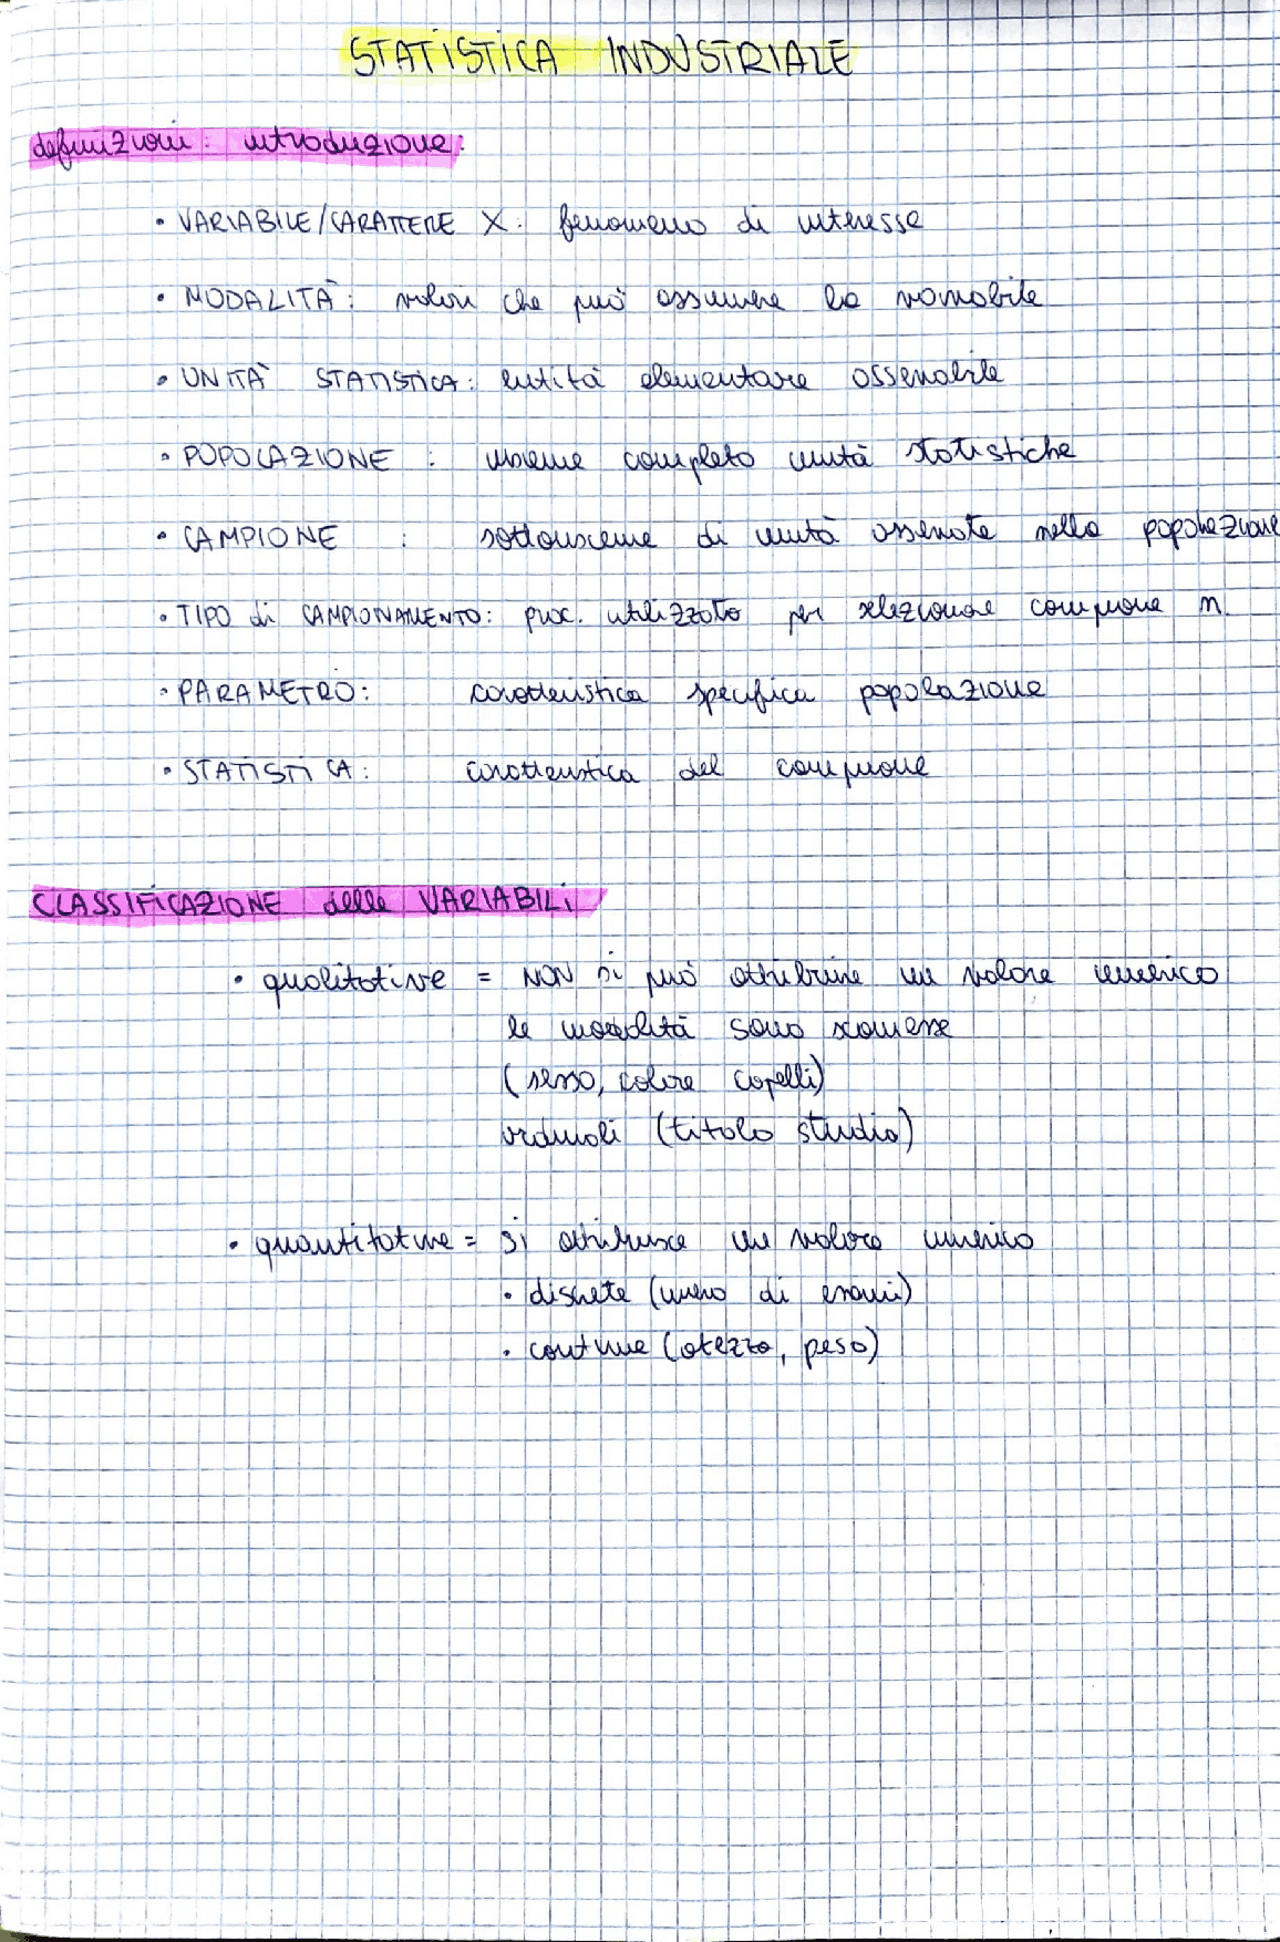 STATISTICA INDUSTRIALE
definizioni: introduzione:
• VARIABILE/CARATTERE X: fenomeno di interesse
• MODALITÀ: valori che può assumere la variabile
• UNITÀ STATISTICA: entità elementare osservabile
• POPOLAZIONE : insieme completo unità statistiche
• CAMPIONE : sottoinsieme di unità osservate nella popolazione
• TIPO di CAMPIONAMENTO: proc. utilizzato per selezionare campione n.
• PARAMETRO: caratteristica specifica popolazione
• STATISTICA: caratteristica del campione
CLASSIFICAZIONE delle VARIABILI
• qualitative = NON si può attribuire un valore numerico
le modalità sono sconnesse
(sesso, colore capelli)
ordinali (titolo studio)
• quantitative = si attribuisce un valore numerico
• discrete (numero di esami)
• continue (altezza, peso)